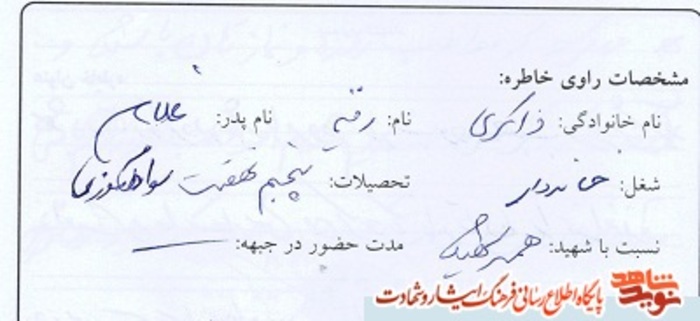 مشخصات راوی خاطره:
نام خانوادگی: ذاکری نام: رقیه نام پدر: غلام
شغل: خانه دار تحصیلات: پنجم نهضت سوادآموزی
نسبت با شهید: همسر شهید مدت حضور در جبهه: ـــ
نوید شاهد
پایگاه اطلاع رسانی فرهنگ ایثار و شهادت